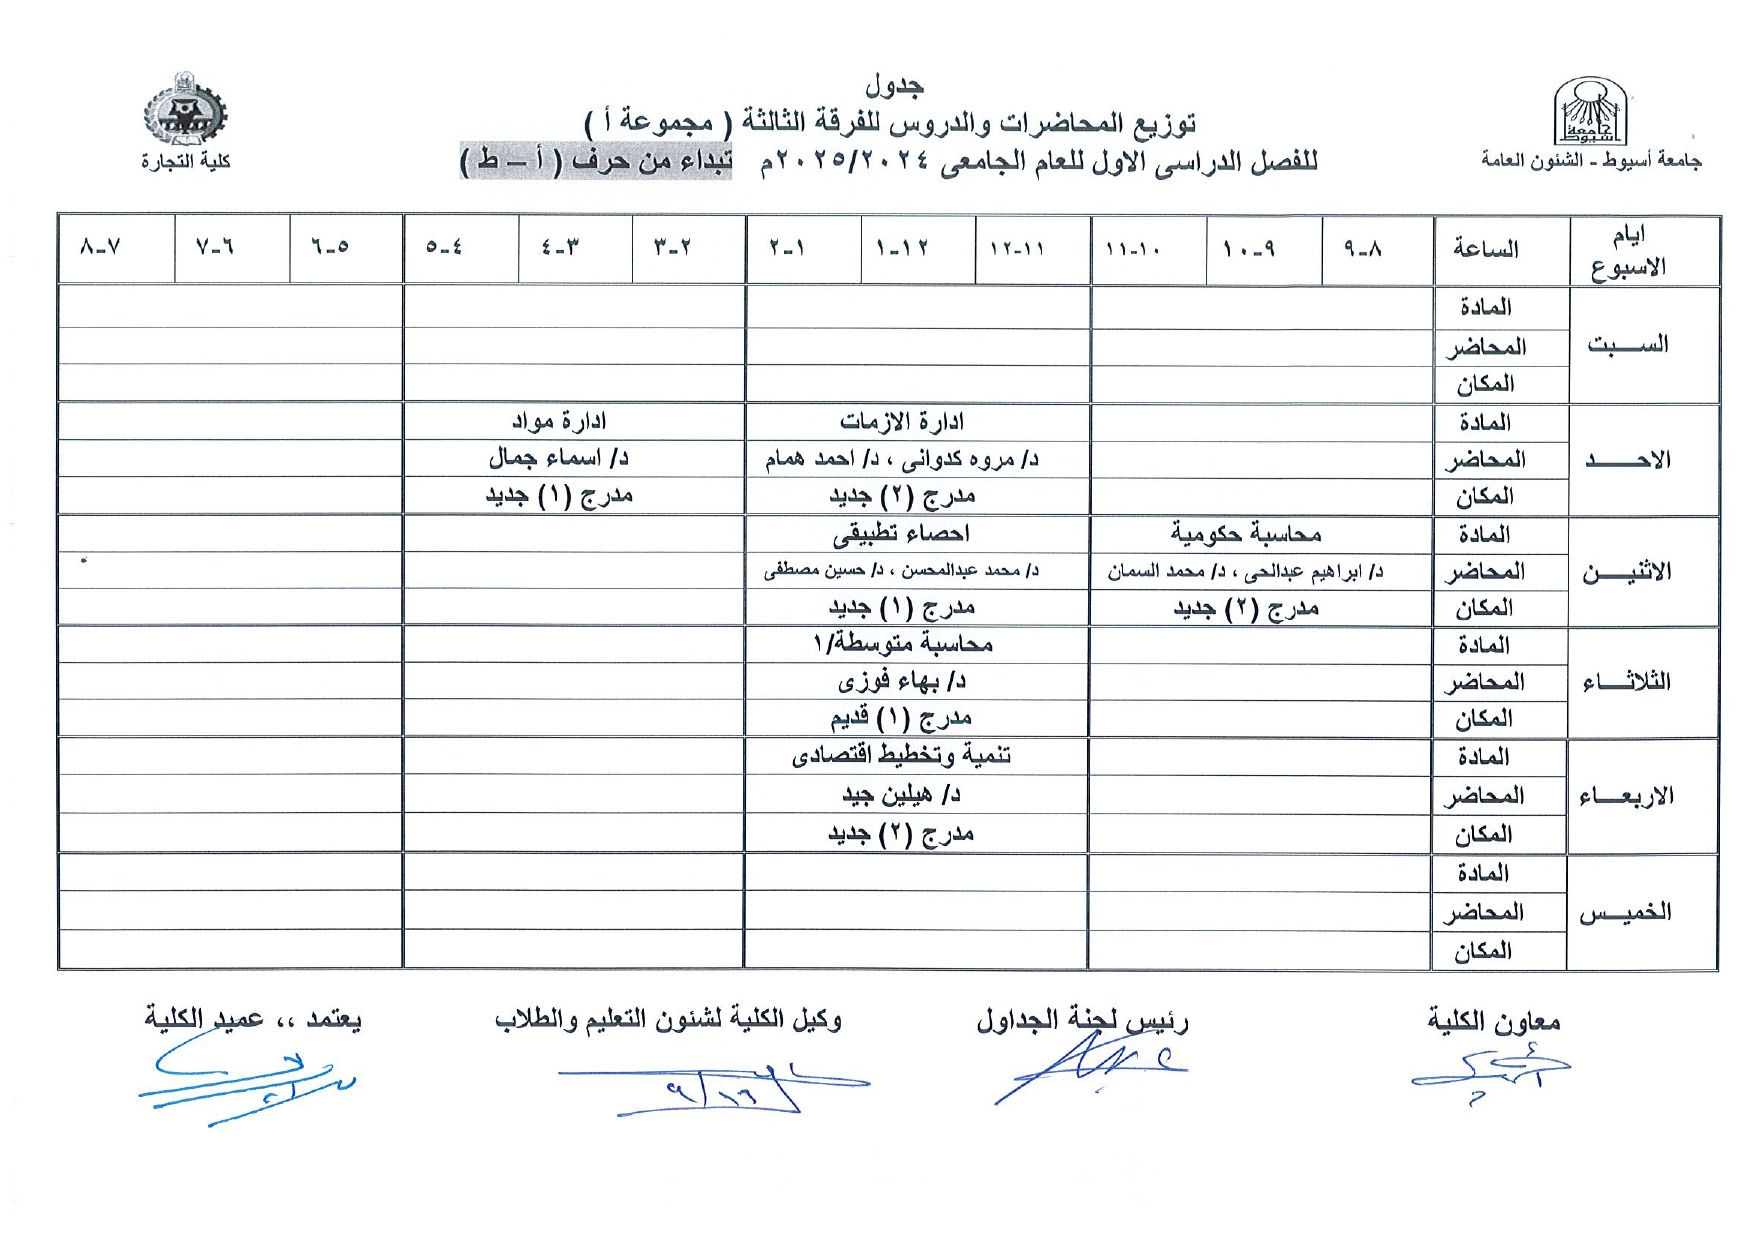 جدول
توزيع المحاضرات والدروس للفرقة الثالثة ( مجموعة أ )
للفصل الدراسى الاول للعام الجامعى ٢٠٢٥/٢٠٢٤م تبداء من حرف ( أ – ط )
جامعة أسيوط
جامعة أسيوط - الشئون العامة
كلية التجارة
ايام الاسبوع الساعة ٨-٩ ٩-١٠ ١٠-١١ ١١-١٢ ١٢-١ ١-٢ ٢-٣ ٣-٤ ٤-٥ ٥-٦ ٦-٧ ٧-٨
السبت
المادة
المحاضر
المكان
الاحد
المادة ادارة الازمات ادارة مواد
المحاضر د/ مروه كدوانى ، د/ احمد همام د/ اسماء جمال
المكان مدرج (٢) جديد مدرج (١) جديد
الاثنين
المادة محاسبة حكومية احصاء تطبيقى
المحاضر د/ ابراهيم عبدالحى ، د/ محمد السمان د/ محمد عبدالمحسن ، د/ حسين مصطفى
المكان مدرج (٢) جديد مدرج (١) جديد
الثلاثاء
المادة محاسبة متوسطة/١
المحاضر د/ بهاء فوزى
المكان مدرج (١) قديم
الاربعاء
المادة تنمية وتخطيط اقتصادى
المحاضر د/ هيلين جيد
المكان مدرج (٢) جديد
الخميس
المادة
المحاضر
المكان
معاون الكلية رئيس لجنة الجداول وكيل الكلية لشئون التعليم والطلاب يعتمد ،، عميد الكلية
٩/١٦